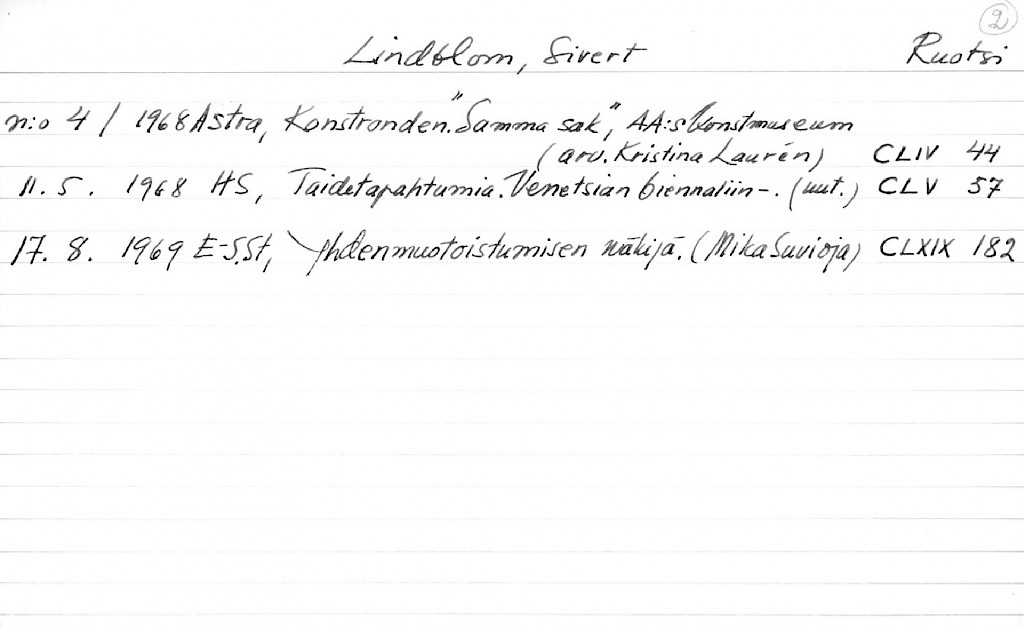 2
Lindblom, Sivert Ruotsi
n:o 4 / 1968 Astra, Konstronden. "Samma sak", AA:s konstmuseum
(arv. Kristina Laurén) CLIV 44
11. 5. 1968 HS, Taidetapahtumia. Venetsian biennaliin -. (uut.) CLV 57
17. 8. 1969 E-S.St, Yhdenmuotoistumisen näkijä. (Mika Suvioja) CLXIX 182